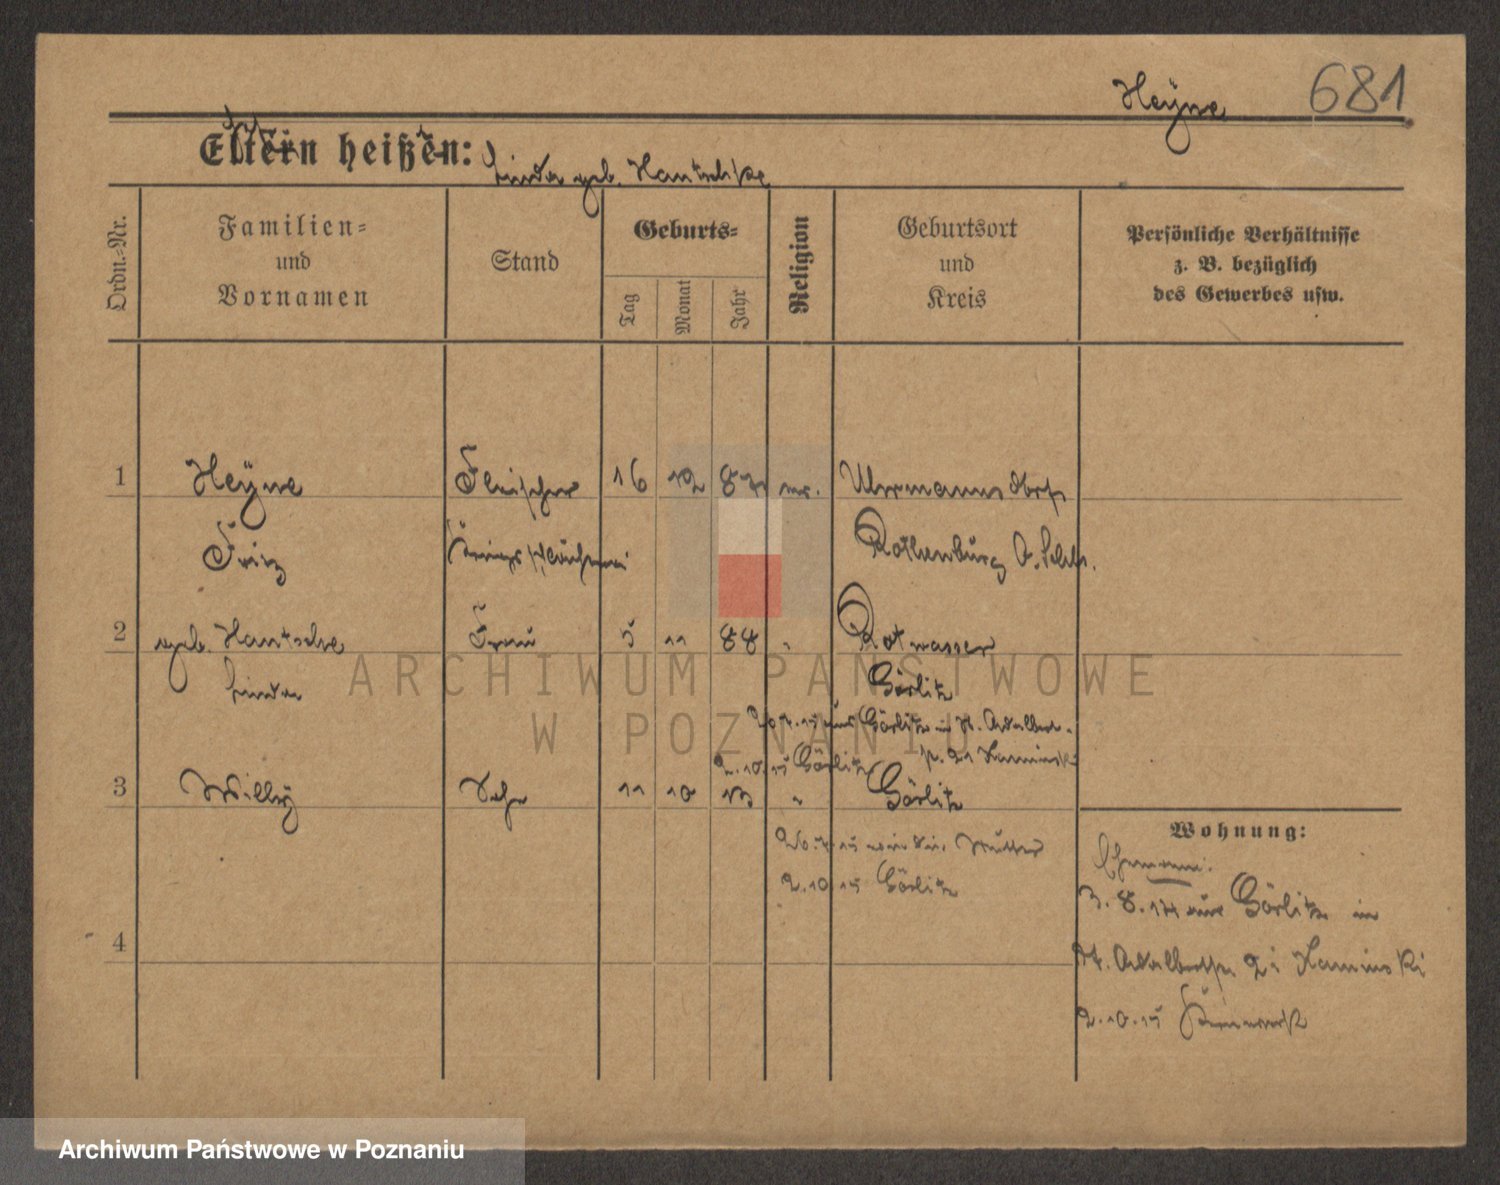 Heyne 681
Eltern heißen:
geb. Hantschke
Ordn.=Nr.
Familien=
und
Vornamen
Stand
Geburts=
Tag
Monat
Jahr
Religion
Geburtsort
und
Kreis
Persönliche Verhältnisse
z. B. bezüglich
des Gewerbes usw.
1 Heyne Fleischer 16 12 87 ev. Uhrmannsdorf
Fritz Rothenburg O. Schls.
2 geb. Hantschke Frau 5 11 88 " Rotwasser
Linda Görlitz
aus Görlitz in St. Adalbert
2.10.15 Görlitz p. 21 Kaminski
3 Willy Sohn 11 10 13 " Görlitz
26.7.15 Mutter
2.10.15 Görlitz
Wohnung:
3. 8. 14 aus Görlitz in
St. Adalbertstr. 21 Kaminski
2.10.15
4
ARCHIWUM PAŃSTWOWE
W POZNANIU
Archiwum Państwowe w Poznaniu